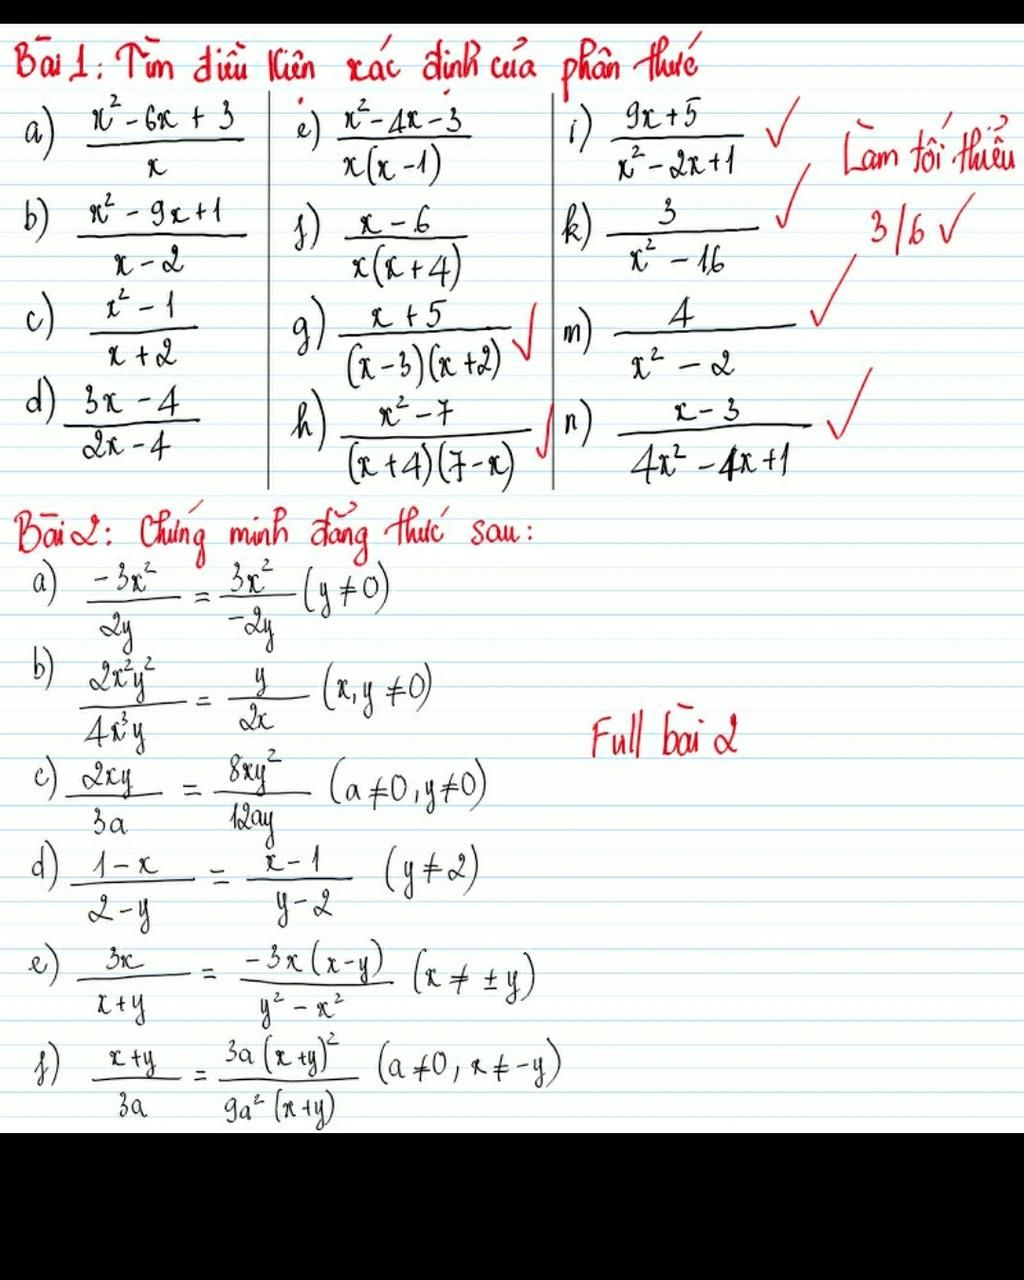 Bài 1: Tìm điều kiện xác định của phân thức
a) (x² - 6x + 3)/x
b) (x² - 9x + 1)/(x - 2)
c) (x² - 1)/(x + 2)
d) (3x - 4)/(2x - 4)
e) (x² - 4x - 3)/(x(x - 1))
f) (x - 6)/(x(x + 4))
g) (x + 5)/((x - 3)(x + 2)) ✓
h) (x² - 7)/((x + 4)(7 - x)) ✓
i) (9x + 5)/(x² - 2x + 1) ✓
k) 3/(x² - 16) ✓
m) 4/(x² - 2) ✓
n) (x - 3)/(4x² - 4x + 1) ✓
Làm tối thiểu
3/6 ✓
Bài 2: Chứng minh đẳng thức sau:
a) (-3x²)/(2y) = (3x²)/(-2y) (y ≠ 0)
b) (2x²y²)/(4x³y) = y/(2x) (x, y ≠ 0)
c) (2xy)/(3a) = (8xy²)/(12ay) (a ≠ 0, y ≠ 0)
d) (1 - x)/(2 - y) = (x - 1)/(y - 2) (y ≠ 2)
e) (3x)/(x + y) = (-3x(x - y))/(y² - x²) (x ≠ ±y)
f) (x + y)/(3a) = (3a(x + y)²)/(9a²(x + y)) (a ≠ 0, x ≠ -y)
Full bài 2